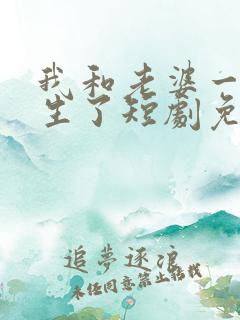 我和老婆一
生了短劇免
追夢逐浪
未经同意禁止转载